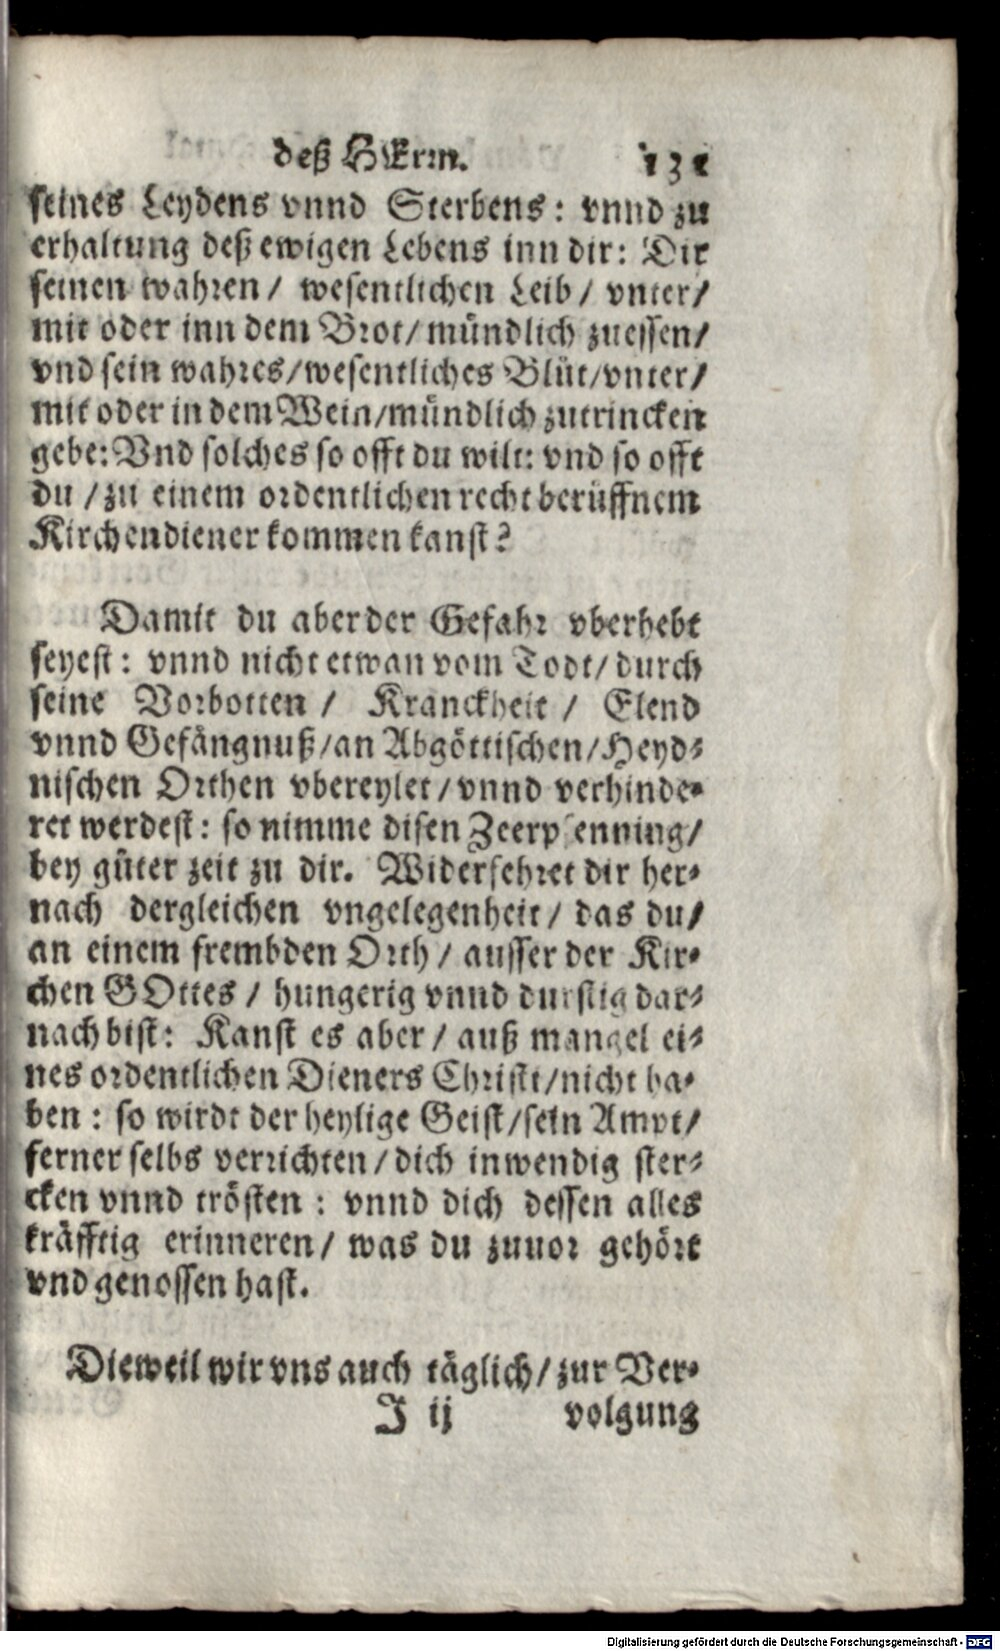 deß HErrn. 131
seines Leydens vnnd Sterbens: vnnd zu
erhaltung deß ewigen Lebens inn dir: Dir
seinen wahren / wesentlichen Leib / vnter/
mit oder inn dem Brot/ mündlich zuessen/
vnd sein wahres/wesentliches Blůt/vnter/
mit oder in dem Wein/mündlich zutrincken
gebe: Vnd solches so offt du wilt: vnd so offt
du / zu einem ordentlichen recht berůffnem
Kirchendiener kommen kanst?
Damit du aber der Gefahr vberhebt
seyest: vnnd nicht etwan vom Todt/ durch
seine Vorbotten / Kranckheit / Elend
vnnd Gefängnuß/an Abgöttischen/Heyd⸗
nischen Orthen vbereylet / vnnd verhinde⸗
ret werdest: so nimme disen Zeerpfenning/
bey gůter zeit zu dir. Widerfehret dir her⸗
nach dergleichen vngelegenheit / das du/
an einem frembden Orth / ausser der Kir⸗
chen GOttes / hungerig vnnd durstig dar⸗
nach bist: Kanst es aber / auß mangel ei⸗
nes ordentlichen Dieners Christi/nicht ha⸗
ben : so wirdt der heylige Geist/sein Ampt/
ferner selbs verrichten / dich inwendig ster⸗
cken vnnd trösten : vnnd dich dessen alles
kräfftig erinneren / was du zuuor gehört
vnd genossen hast.
Dieweil wir vns auch täglich / zur Ver⸗
J ij volgung
Digitalisierung gefördert durch die Deutsche Forschungsgemeinschaft - DFG